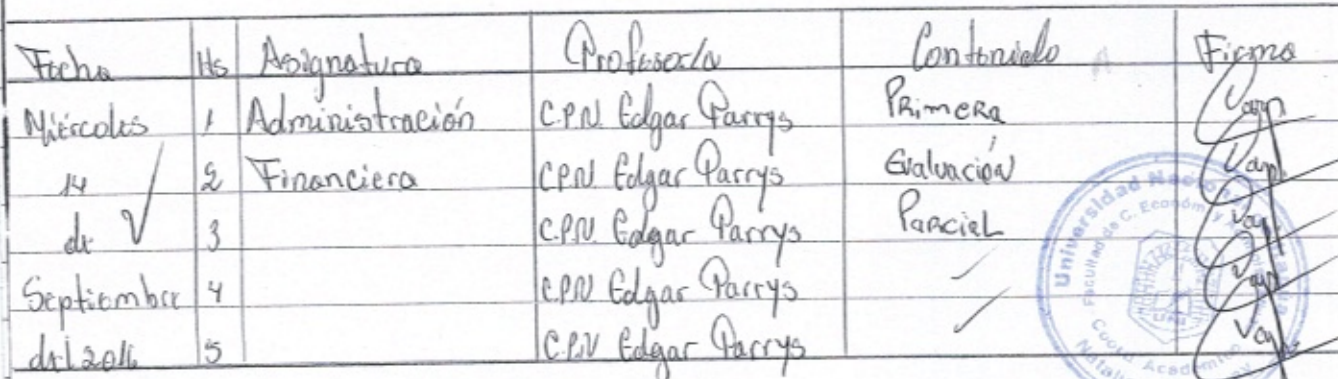 Fecha Hs Asignatura Profesor/a Contenido Firma
Miércoles 1 Administración C.P.N. Edgar Parrys PRimeRa
14 2 Financiera C.P.N. Edgar Parrys Evaluación
de 3 C.P.N. Edgar Parrys Parcial
Septiembre 4 C.P.N. Edgar Parrys
del 2016 5 C.P.N. Edgar Parrys
Universidad Nacional
Facultad de C. Económ. y